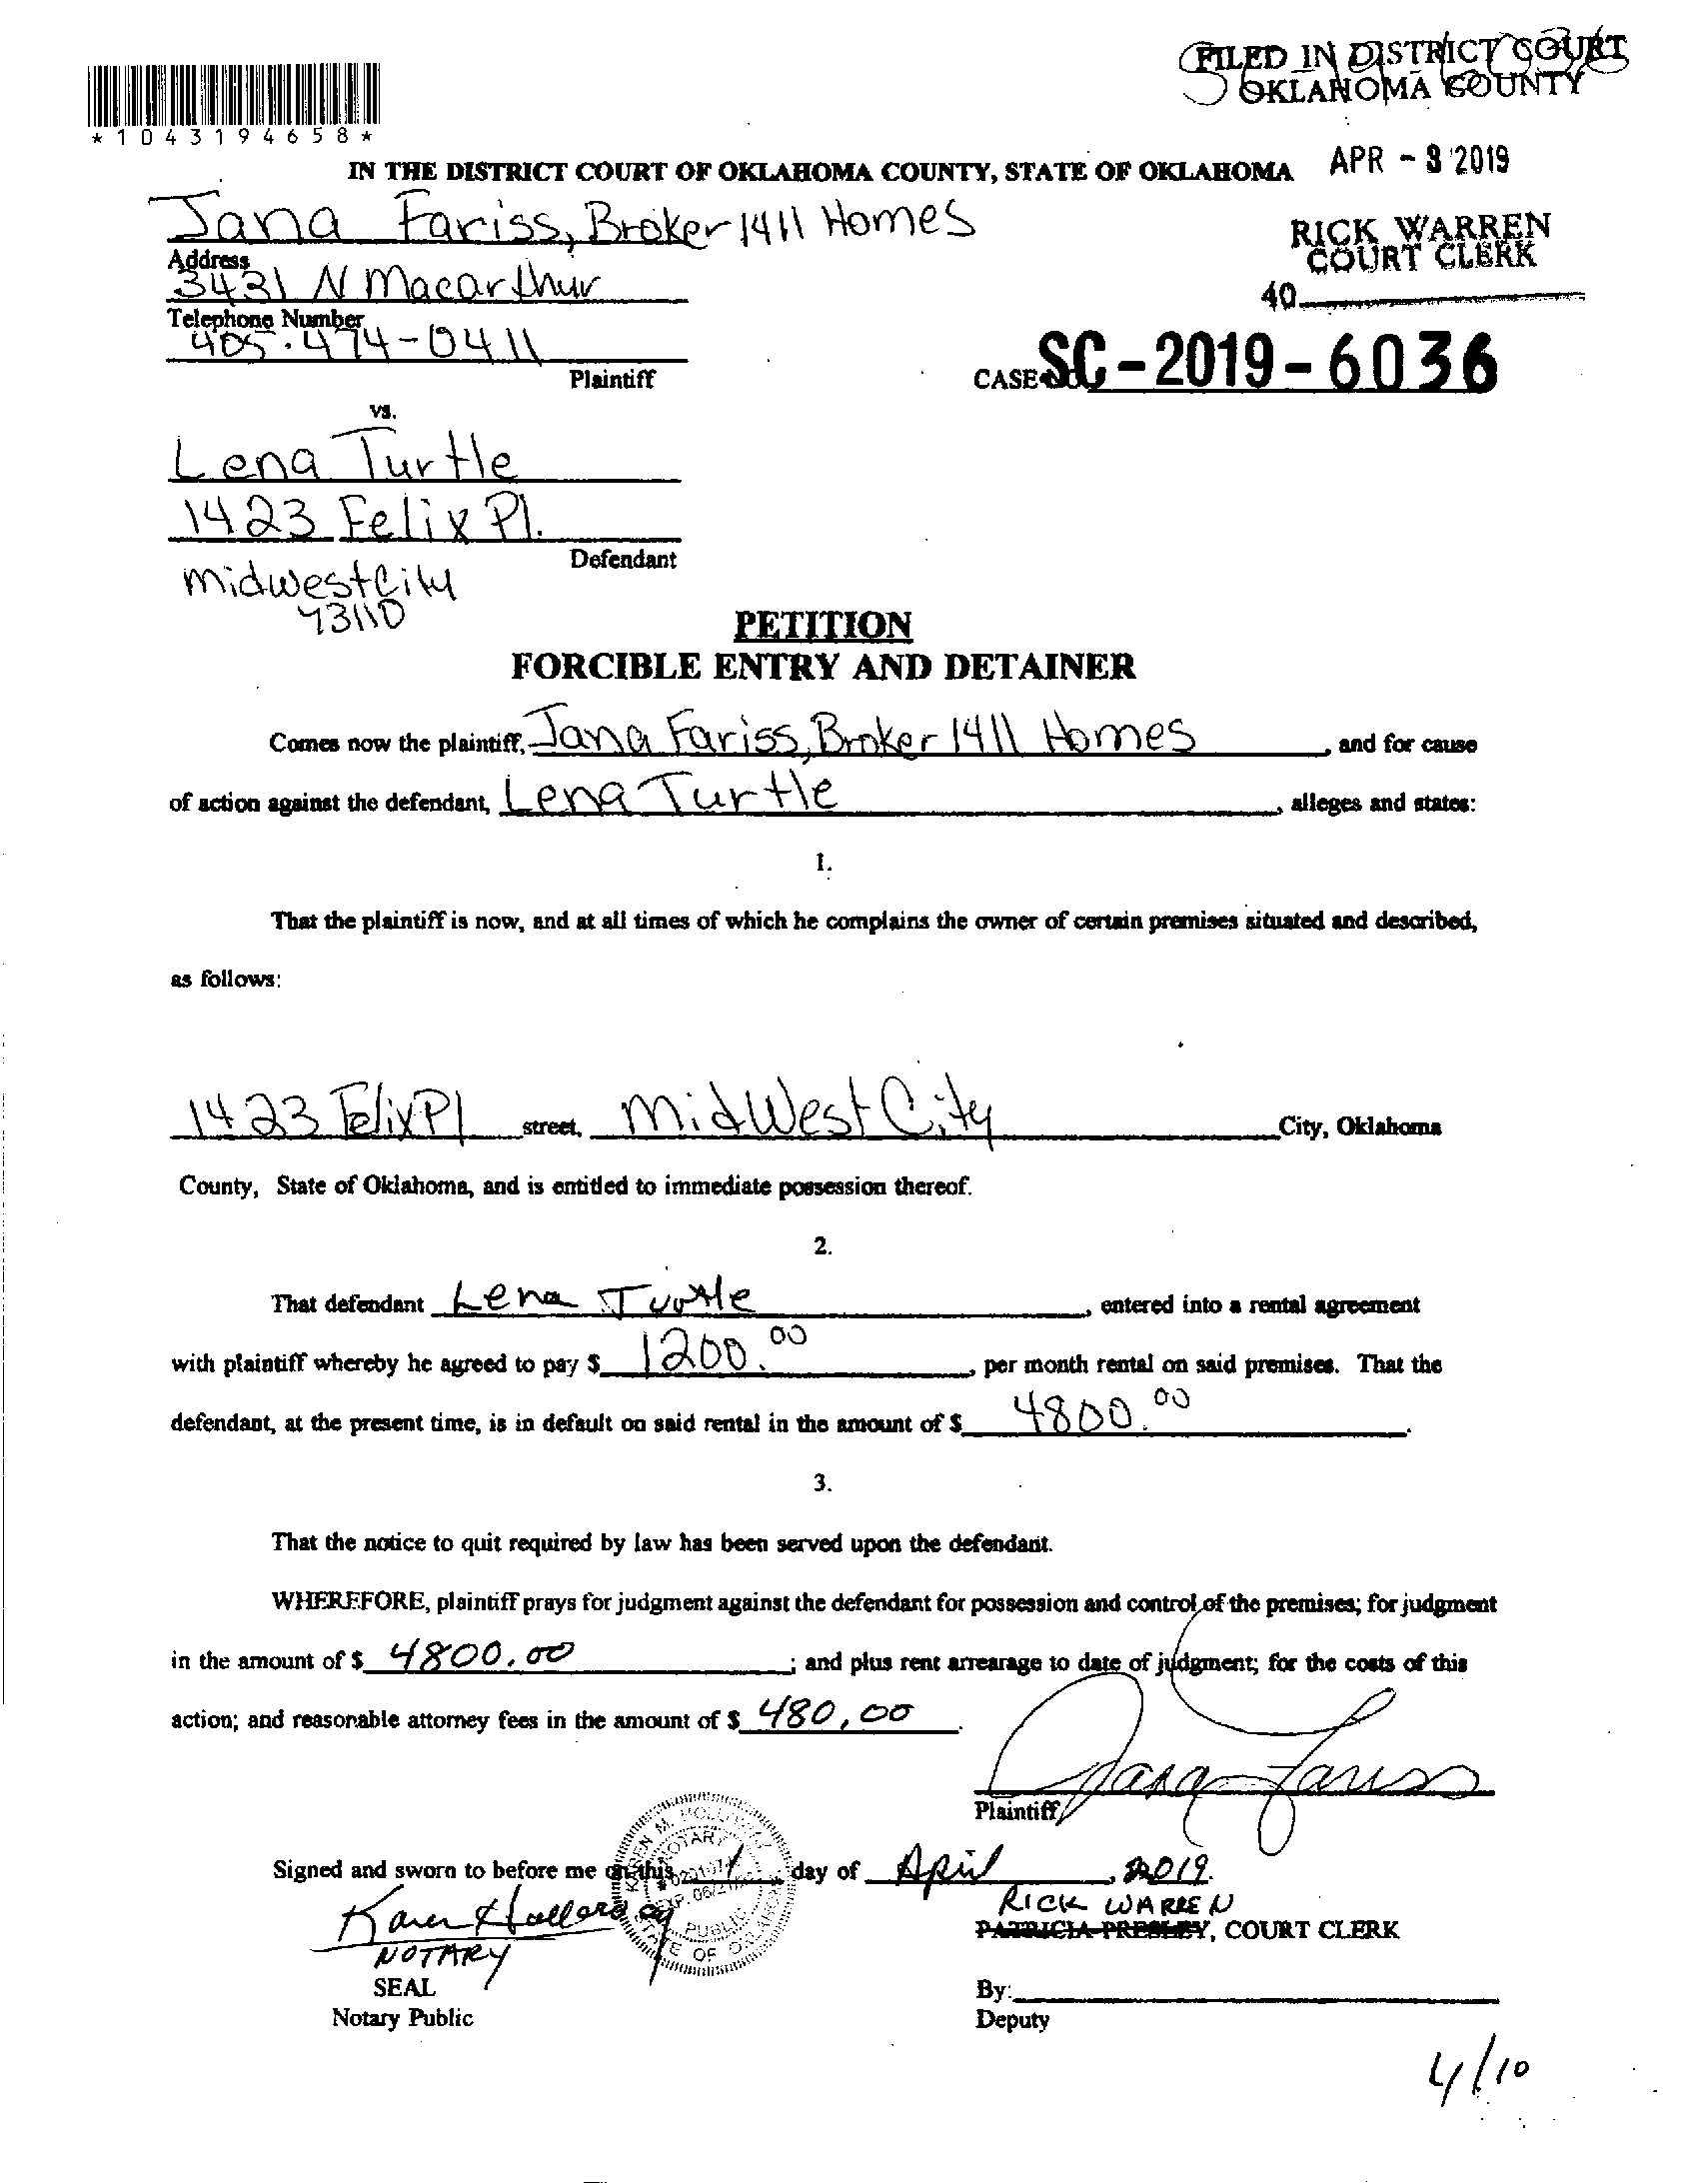 FILED IN DISTRICT COURT
OKLAHOMA COUNTY
*1043194658*
IN THE DISTRICT COURT OF OKLAHOMA COUNTY, STATE OF OKLAHOMA
APR - 3 2019
Jana Fariss, Broker 1411 Homes
RICK WARREN
COURT CLERK
Address
3431 N Macarthur
40
Telephone Number
405.474-0411
Plaintiff
CASE SC-2019-6036
vs.
Lena Turtle
1423 Felix Pl.
Defendant
Midwest City
73110
PETITION
FORCIBLE ENTRY AND DETAINER
Comes now the plaintiff, Jana Fariss, Broker 1411 Homes, and for cause
of action against the defendant, Lena Turtle, alleges and states:
1.
That the plaintiff is now, and at all times of which he complains the owner of certain premises situated and described,
as follows:
1423 Felix Pl street, MidWest City City, Oklahoma
County, State of Oklahoma, and is entitled to immediate possession thereof.
2.
That defendant Lena Turtle, entered into a rental agreement
with plaintiff whereby he agreed to pay $ 1200.00, per month rental on said premises. That the
defendant, at the present time, is in default on said rental in the amount of $ 4800.00.
3.
That the notice to quit required by law has been served upon the defendant.
WHEREFORE, plaintiff prays for judgment against the defendant for possession and control of the premises; for judgment
in the amount of $ 4800.00; and plus rent arrearage to date of judgment; for the costs of this
action; and reasonable attorney fees in the amount of $ 480,00.
Jana Fariss
Plaintiff
Signed and sworn to before me on this 1 day of April, 2019.
Karen Holloway
RICK WARREN
PATRICIA PRESLEY, COURT CLERK
NOTARY
SEAL
By:
Notary Public
Deputy
4/10